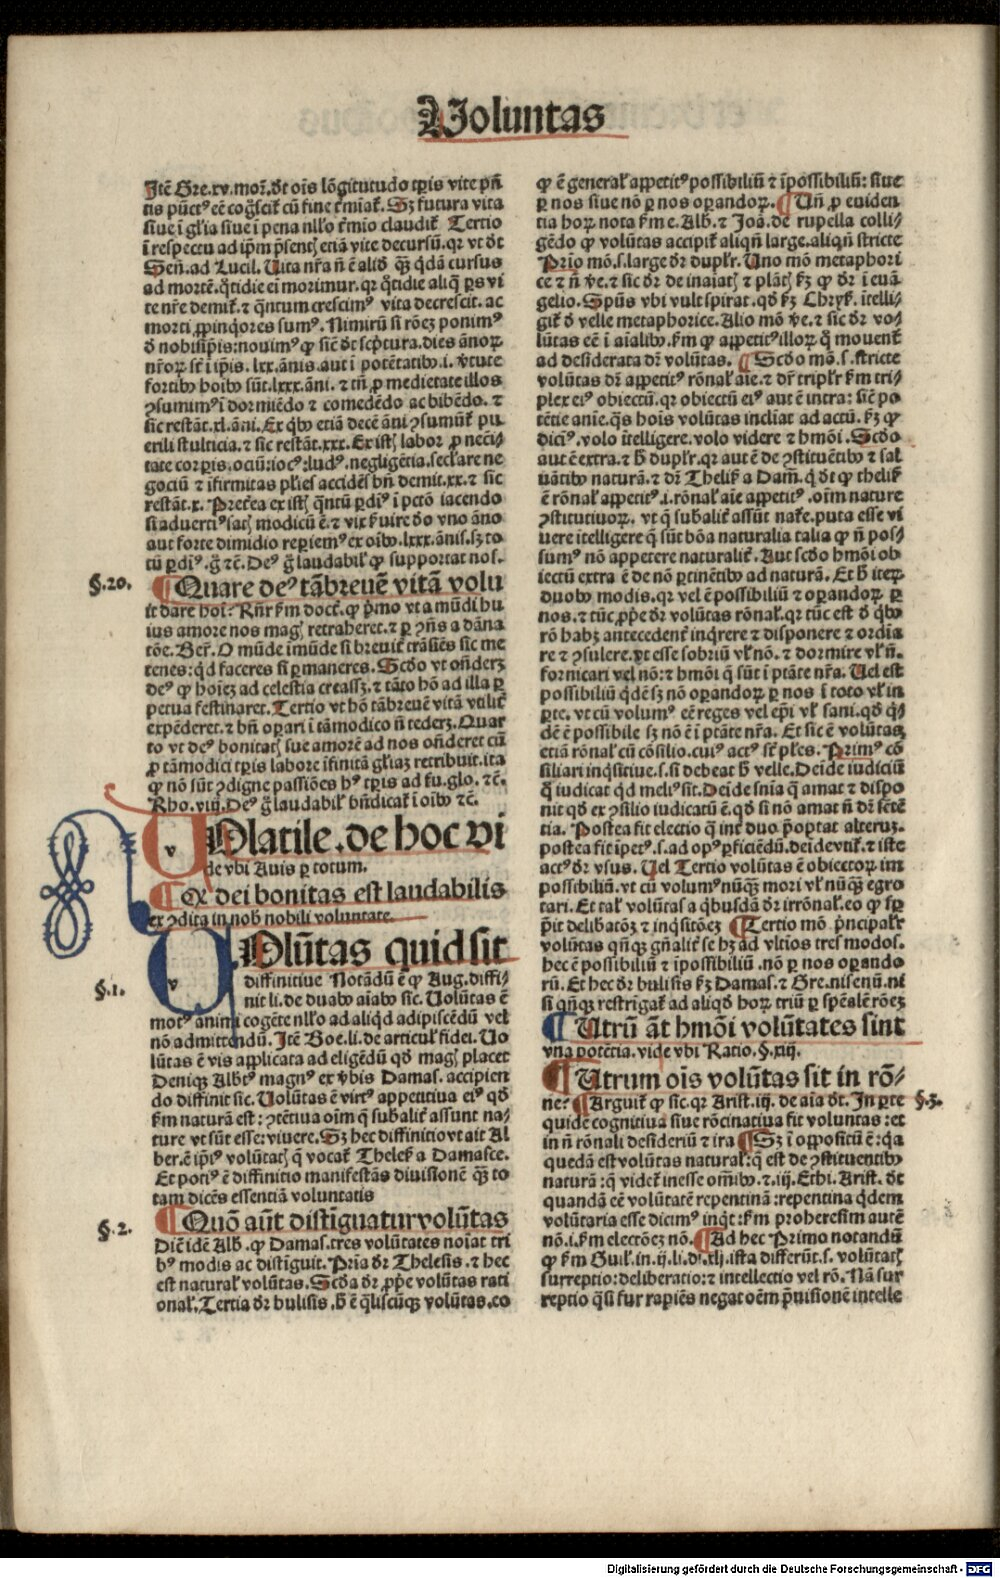 Voluntas
Itē Gre.xv.moꝝ.dt oīs lōgitutudo tp̄is vite p̄n
tis pūctꝰ eē cogſcit̄ cū fine t̄miat̄. Sꝫ futura vita
siue ī gl̄ia siue ī pena nllo t̄mīo claudit̄ Tertio
ī respectu ad ip̄m p̄sentꝫ etiā vite decursū.qꝛ vt dt
Señ.ad Lucil. Uita nr̄a ñ ē aliđ qꝫ q̄dā cursus
ad mortē.q̄tidie eī morimur.qꝛ q̄tidie aliq̄ ꝑs vi
te nr̄e demit̄.⁊ q̄ntum crescimꝰ vita decrescit.ac
morti ꝓpinq̄ores sumꝰ.Nimirū si rōeꝫ ponimꝰ
đ nobisip̄is:nouimꝰ ꝙ sič dt scp̄tura.dies ānoꝝ
nr̄oꝝ st̄ ī ip̄is.lxx.ānis.aut ī potētatibꝰ.i.v̄tute
fortibꝰ hoibꝰ sūt.lxxx.āni.⁊ tñ ꝓ medietate illos
ꝯsumimꝰ ī dormiēdo ⁊ comedēdo ac bibēdo.⁊
sic restāt.xl.āni.Ex q̄bꝰ etiā decē āni ꝯsumūt̄ pu
erili stulticia.⁊ sic restāt.xxx.Ex istꝭ labor ꝓ nec̄i
tate corꝑis.ociū:iocꝰ:ludꝰ.negligētia.sec̄lare ne
gociū ⁊ īfirmitas pl̄ies accidēs bñ demit.xx.⁊ sic
restāt.x. Pret̄ea ex istꝭ q̄ntū ꝑdiꝰ ī pctō iacendo
si aduertiꝰ satꝭ modicū ē.⁊ vix ẜuire do vno āno
aut forte dimidio reꝑiemꝰ ex oibꝰ.lxxx.ānis.sꝫ to
tū ꝑdiꝰ.ḡ ⁊c̄.Deꝰ ḡ laudabil̄ ꝙ supportat nos.
§.20. ¶ Quare deꝰ tābreuē vitā volu
it dare hoī? Rñr ẜm doct̄.ꝙ p̄mo vt a mūdi hu
ius amore nos magꝭ retraheret.⁊ ꝑ ꝯñs a dāna
tōe.Ber̄.O mūde īmūde si breuit̄ trāsiēs sic me
tenes:q̄d faceres si ꝑmaneres.Scđo vt ondeꝝ
deꝰ ꝙ hoieꝫ ad celestia creassꝫ.⁊ tāto hō ad illa ꝑ
petua festinaret.Tertio vt hō tābreuē vitā vtilit̄
expēderet.⁊ bñ oꝑari ī tāmodico ñ tederꝫ.Quar
to vt deꝰ bonitatꝭ sue amorē ad nos onderet cū
ꝓ tāmodici tp̄is labore īfinitā gl̄iaꝫ retribuit.ita
ꝙ nō sūt ꝯdigne passiōes hꝰ tp̄is ad fu.glo.⁊c̄.
Rho.viij.Deꝰ ḡ laudabil̄ bn̄dicat̄ ī oibꝰ ⁊c̄.
VOlatile.de hoc vi
de vbi Auis ꝑ totum.
¶ Ex dei bonitas est laudabilis
ex ꝯdita in nobꝭ nobili voluntate.
VOlūtas quid sit
§.1. diffinitiue Notādū ē ꝙ Aug.diffi-
nit li.de duabꝰ aīabꝰ sic.Uolūtas ē
motꝰ animi cogēte nllo ad aliq̄d adipiscēdū vel
nō admittendū.Itē Boe.li.de articul̄ fidei.Uo
lūtas ē vis applicata ad eligēdū qđ magꝭ placet
Deniqꝫ Albtꝰ magnꝰ ex v̄bis Damas.accipien
do diffinit sic.Uolūtas ē virtꝰ appetitiua eiꝰ qđ
ẜm naturā est: ꝯtētiua oim q̄ subalit̄ assunt na-
ture vt sūt esse:viuere.Sꝫ hec diffinitio vt ait Al
ber.ē ip̄iꝰ volūtatꝭ q̄ vocat̄ Thelesꝭ a Damasce.
Et potiꝰ ē diffinitio manifestās diuisionē qꝫ to
tam dicēs essentiā voluntatis
§.2. ¶ Quō aūt distīguatur volūtas
Dič idē Alb̄.ꝙ Damas.tres volūtates noīat tri
bꝰ modis ac distīguit.Pria dr̄ Thelesis.⁊ hec
est natural̄ volūtas.Scđa dr̄ ꝓp̄e volūtas rati
onal̄.Tertia dr̄ bulisis.h̄ ē q̄liscūqꝫ volūtas.eo
ꝙ ē general̄ appetitꝰ possibiliū ⁊ īpossibiliū: siue
ꝑ nos siue nō ꝑ nos oꝑandoꝝ.¶ Uñ ꝓ euiden
tia hoꝝ nota ẜm e.Alb̄.⁊ Joā.de rupella colli-
gēdo ꝙ volūtas accipit̄ aliqñ large.aliqñ stricte
Prio mō.s.large dr̄ duplr̄.Uno mō metaphori
ce ⁊ ñ v̄e.⁊ sic dr̄ de inaīatꝭ ⁊ plātꝭ ẜꝫ ꝙ dr̄ ī euā
gelio.Spūs vbi vult spirat.qđ ẜꝫ Chryẜ.ītelli-
git̄ đ velle metaphorice.Alio mō v̄e.⁊ sic dr̄ vo-
lūtas eē ī aīalibꝰ.ẜm ꝙ appetitꝰ illoꝝ q̄ mouent̄
ad desiderata dr̄ volūtas. ¶ Scđo mō.s.stricte
voluntas dr̄ appetitꝰ rōnal̄ aīe.⁊ dr̄ triplr̄ ẜm tri-
plex eiꝰ obiectū.qꝛ obiectū eiꝰ aut ē intra: sič po
tētie anīe.q̄s hois volūtas incliat ad actū.ẜꝫ ꝙ
dicīꝰ.volo ītelligere.volo videre ⁊ hmōi.Scđo
aut ē extra.⁊ h̄ duplr̄.qꝛ aut ē de ꝯstituētibꝰ ⁊ sal
uātibꝰ naturā.⁊ dr̄ Thelisꝭ a Dam̄.q̄ dt ꝙ thelisꝭ
ē rōnal̄ appetitꝰ.i.rōnal̄ aīe appetitꝰ.oīm nature
ꝯstitutiuoꝝ.vt q̄ subalit̄ assūt nat̄e.puta esse vi
uere ītelligere q̄ sūt bōa naturalia talia ꝙ ñ pos-
sumꝰ nō appetere naturalit̄.Aut scđo hmōi ob
iectū extra ē de nō ꝑtinētibꝰ ad naturā.Et h̄ iteꝝ
duobꝰ modis.qꝛ vel ē possibiliū ⁊ oꝑandoꝝ ꝑ
nos.⁊ tūc ꝓp̄e dr̄ volūtas rōnal̄.qꝛ tūc est đ q̄bꝰ
rō habꝫ antecedent̄ inq̄rere ⁊ disponere ⁊ ordia
re ⁊ ꝯsulere.vt esse sobriū vl̄ nō.⁊ dormire vl̄ ñ.
fornicari vel nō:⁊ hmōi q̄ sūt ī ptāte nr̄a. Uel est
possibiliū q̄dē sꝫ nō oꝑandoꝝ ꝑ nos ī toto vl̄ in
ꝑte.vt cū volumꝰ eē reges vel ep̄i vl̄ sani.qđ q̄-
dē ē possibile sꝫ nō ē ī ptāte nr̄a. Et sic ē volūtas
etiā rōnal̄ cū cōsilio.cuiꝰ actꝰ st̄ pl̄es.Primꝰ cō
siliari inq̄sitiue.s.si debeat h̄ velle.Deīde iudiciū
q̄ iudicat q̄d meliꝰ sit.Deīde snīa q̄ amat ⁊ dispo
nit qđ ex ꝯsilio iudicatū ē.qđ si nō amat ñ dr̄ sētē
tia. Postea fit electio q̄ int̄ duo p̄optat alteruꝫ.
postea fit īpetꝰ.s.ad opꝰ ꝑficiēdū.deī devtit̄.⁊ iste
actꝰ dr̄ vsus. Uel Tertio volūtas ē obiectoꝝ im
possibiliū.vt cū volumꝰ nūqꝫ mori vl̄ nūqꝫ egro
tari.Et tal̄ volūtas a q̄busdā dr̄ irrōnal̄.eo ꝙ sꝑ
p̄it delibatōꝫ ⁊ inq̄sitōeꝫ ¶ Tertio mō p̄ncipalr̄
volūtas qūqꝫ gn̄alit̄ se hꝫ ad vltīos tres modos.
hec ē possibiliū ⁊ īpossibiliū.nō ꝑ nos oꝑando
rū.Et hec dr̄ bulisis ẜꝫ Damas.⁊ Gre.nisenū.ni
si qñqꝫ restrigat̄ ad aliqđ hoꝝ triū ꝑ spēalē rōeꝫ
¶ Utrū āt hmōi volūtates sint
vna potētia.vide vbi Ratio.§.xiij.
¶ Utrum oīs volūtas sit in rō-
ne? ¶ Arguit̄ ꝙ sic.qꝛ Arist.iij.de aīa dt.In ꝑte §.3.
quide cognitiua siue rōcinatiua fit voluntas:et
in ñ rōnali desideriū ⁊ ira ¶ Sꝫ ī oppositū ē:q̄a
quedā est volūtas natural̄:q̄ est de ꝯstituentibꝰ
naturā:q̄ videt̄ inesse omībꝰ.⁊.iij.Ethi.Arist.dt
quandā eē volūtatē repentinā:repentina q̄dem
volūtaria esse dicimꝰ inq̄t:ẜm ꝓheresim autē
nō.i.ẜm electōeꝫ nō.¶ Ad hec Primo notandū
ꝙ ẜm Guil̄.in.ij.li.di.xlj.ista differūt.s.voluntatꝭ
surreptio:deliberatio:⁊ intellectio vel rō.Nā sur
reptio q̄si fur rapiēs negat oēm p̄uisionē intelle
Digitalisierung gefördert durch die Deutsche Forschungsgemeinschaft - DFG